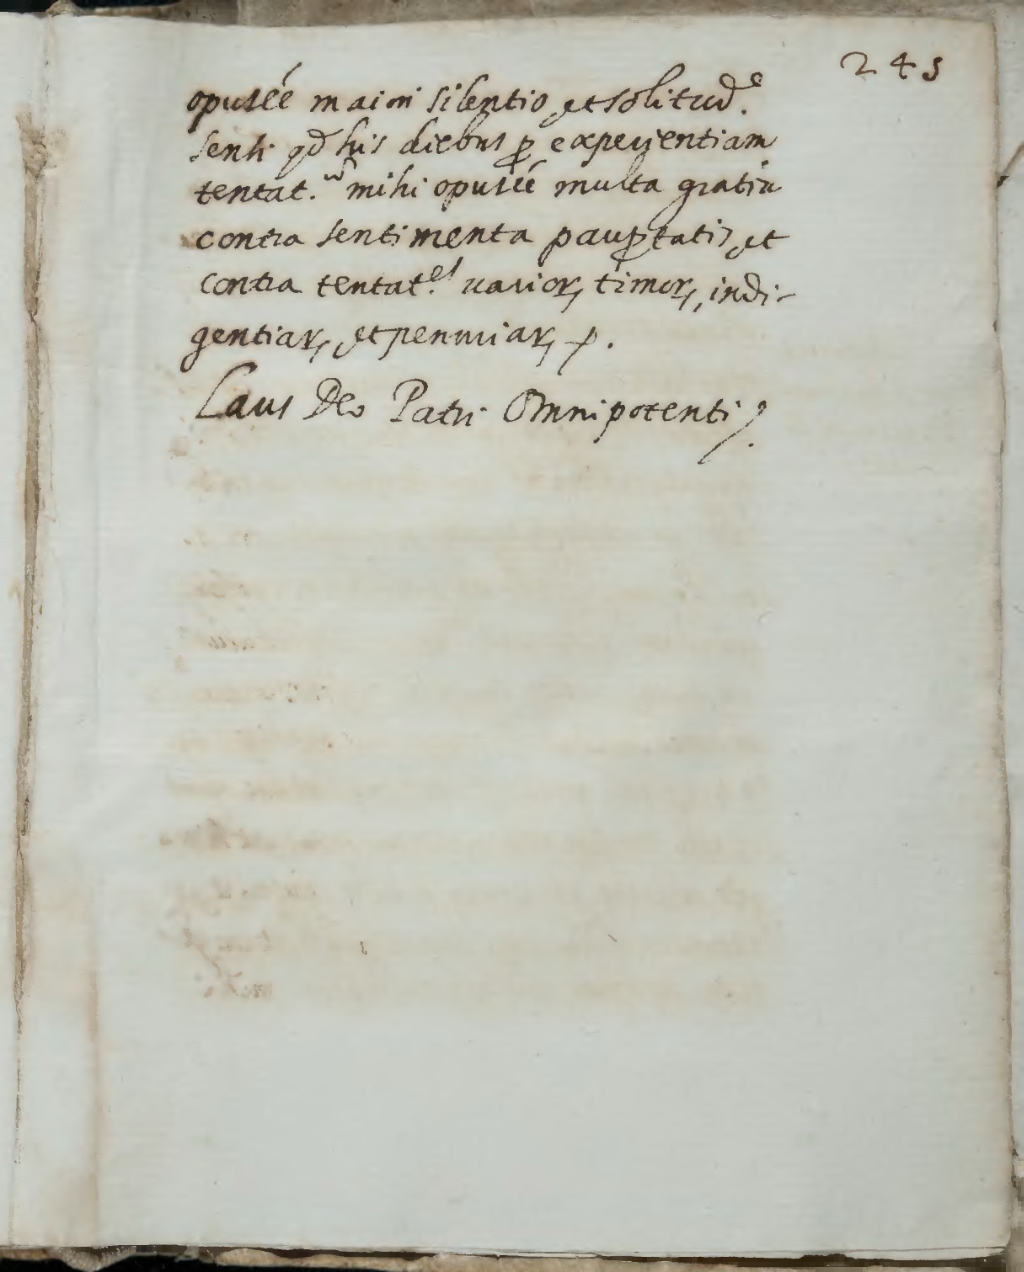 243
opus éé maiori silentio, et solitud.e
senti qd his diebus ꝑ experientiam
tentat.m mihi opus éé multa gratia
contra sentimenta pauꝑtatis, et
contra tentat.es varioꝝ, timoꝝ, indi-
gentiaꝝ, et penuriaꝝ,
Laus Deo Patri Omnipotenti